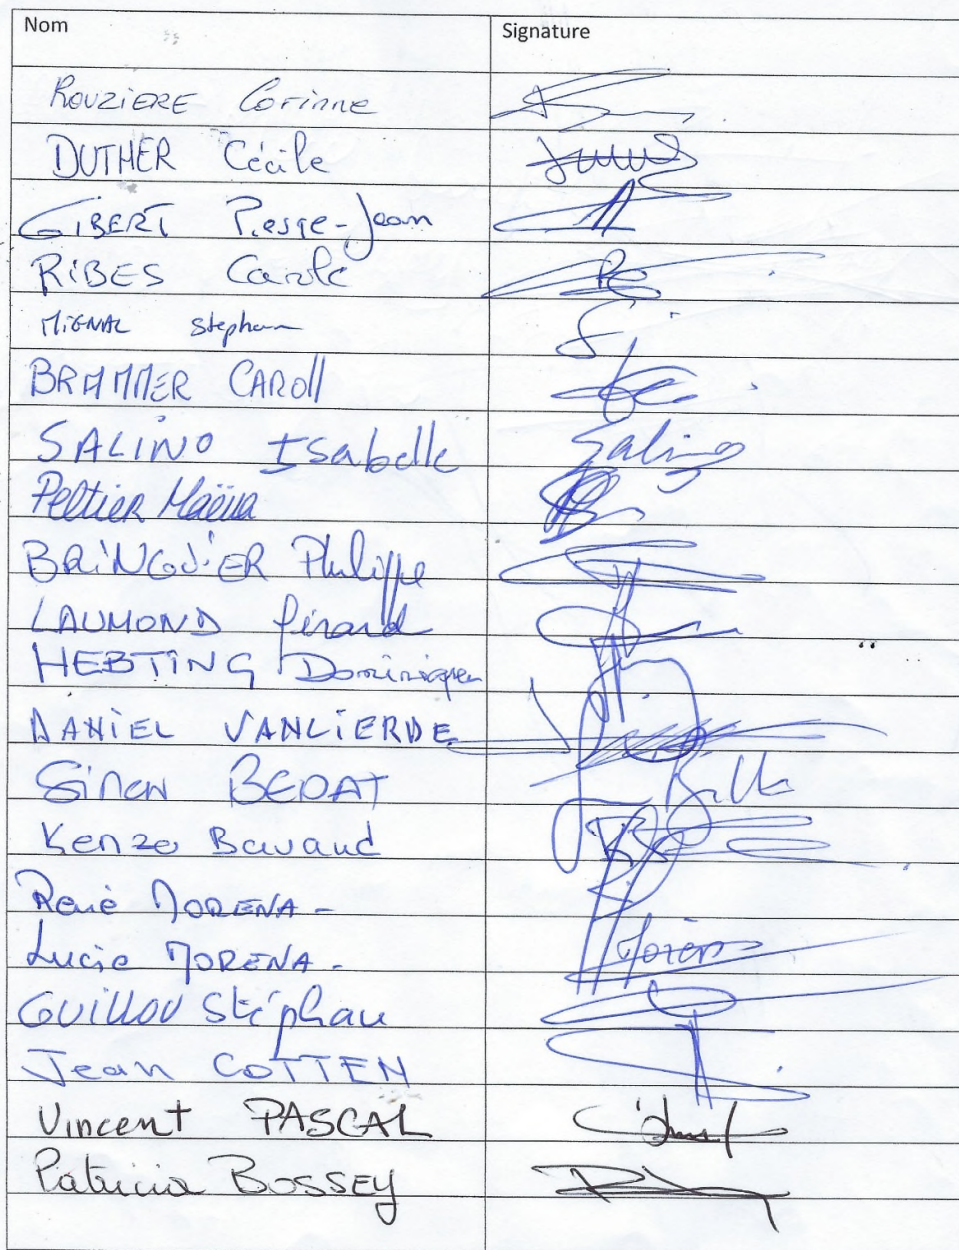 Nom Signature
ROUZIERE Corinne
DUTHER Cécile
GIBERT Pierre-Jean
RIBES Carole
MIGNAL Stephan
BRAMMER CAROll
SALINO Isabelle Salino
Peltier Maëva
BRINGUIER Philippe
LAUMOND Gérard
HEBTING Dominique
DANIEL VANLIERDE
Simon BEDAT
Kenzo Bavaud
René MORENA -
Lucie MORENA -
GUILLOU Stéphan
Jean COTTEN
Vincent PASCAL
Patricia BOSSEY